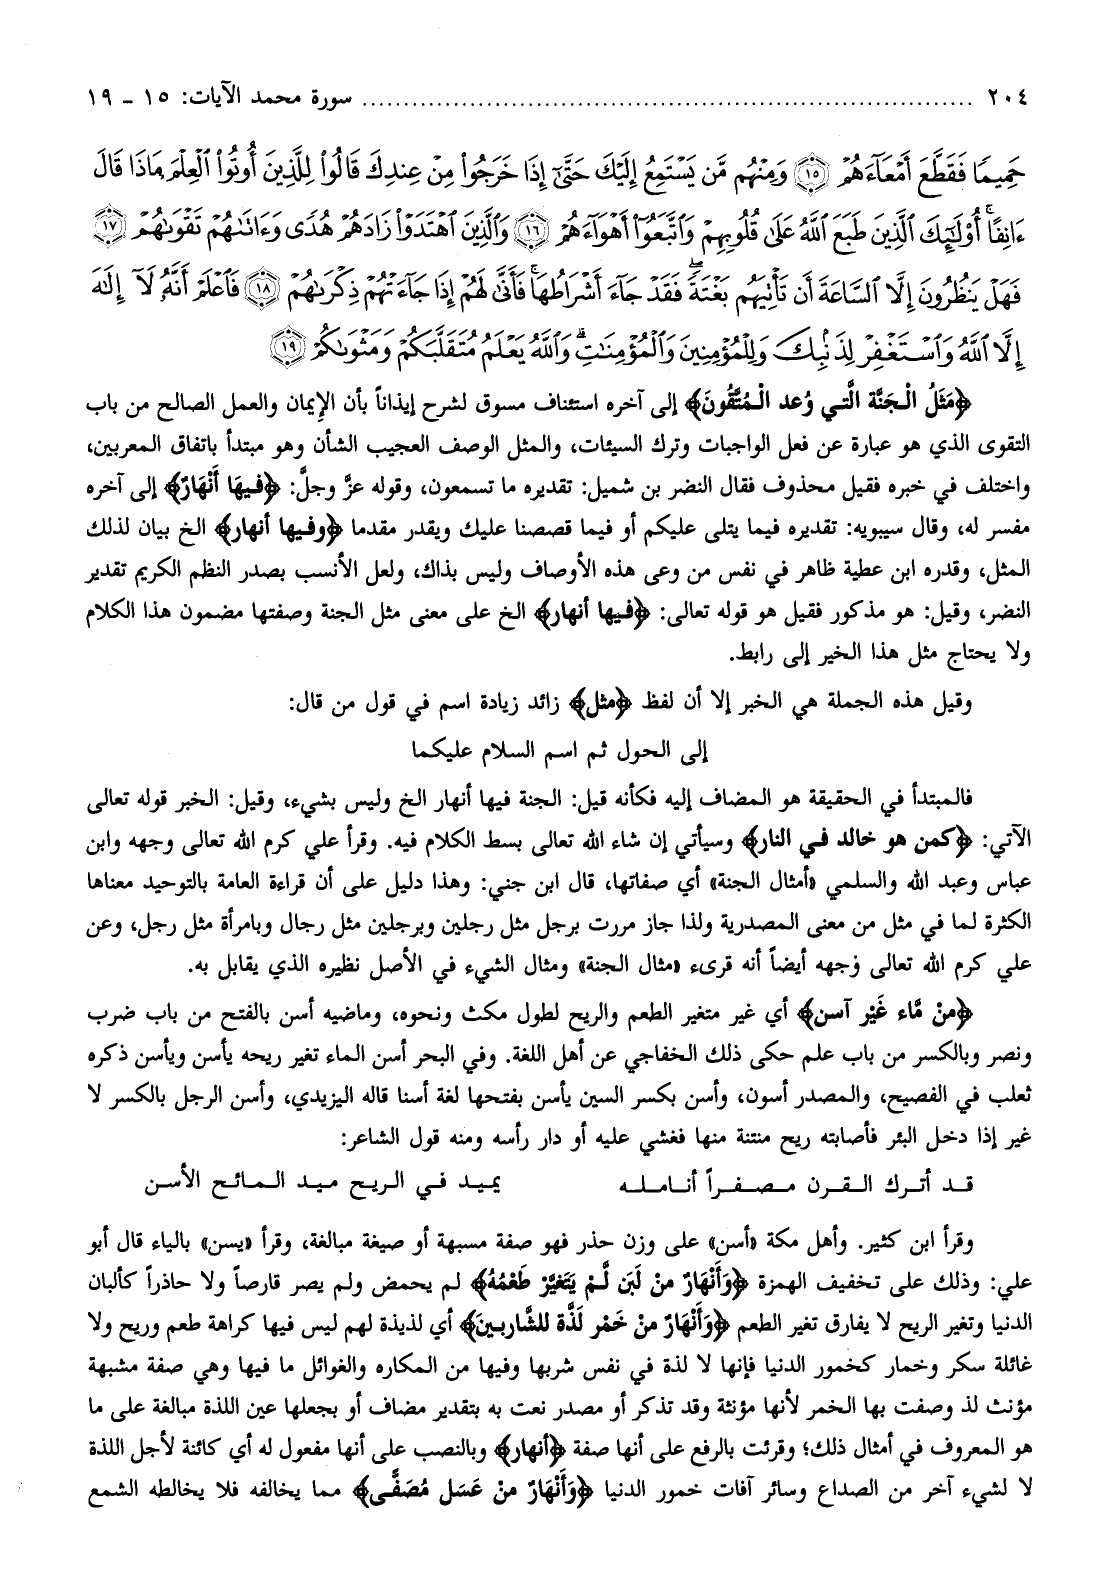 ٢٠٤ ........................ سورة محمد الآيات: ١٥ - ١٩
حَمِيمًا فَقَطَّعَ أَمْعَآءَهُمْ ﴿١٥﴾ وَمِنْهُم مَّن يَسْتَمِعُ إِلَيْكَ حَتَّىٰٓ إِذَا خَرَجُوا۟ مِنْ عِندِكَ قَالُوا۟ لِلَّذِينَ أُوتُوا۟ ٱلْعِلْمَ مَاذَا قَالَ
ءَانِفًا ۚ أُو۟لَٰٓئِكَ ٱلَّذِينَ طَبَعَ ٱللَّهُ عَلَىٰ قُلُوبِهِمْ وَٱتَّبَعُوٓا۟ أَهْوَآءَهُمْ ﴿١٦﴾ وَٱلَّذِينَ ٱهْتَدَوْا۟ زَادَهُمْ هُدًى وَءَاتَىٰهُمْ تَقْوَىٰهُمْ ﴿١٧﴾
فَهَلْ يَنظُرُونَ إِلَّا ٱلسَّاعَةَ أَن تَأْتِيَهُم بَغْتَةً ۖ فَقَدْ جَآءَ أَشْرَاطُهَا ۚ فَأَنَّىٰ لَهُمْ إِذَا جَآءَتْهُمْ ذِكْرَىٰهُمْ ﴿١٨﴾ فَٱعْلَمْ أَنَّهُۥ لَآ إِلَٰهَ
إِلَّا ٱللَّهُ وَٱسْتَغْفِرْ لِذَنۢبِكَ وَلِلْمُؤْمِنِينَ وَٱلْمُؤْمِنَٰتِ ۗ وَٱللَّهُ يَعْلَمُ مُتَقَلَّبَكُمْ وَمَثْوَىٰكُمْ ﴿١٩﴾
﴿مَثَلُ الْجَنَّة الَّتي وُعد الْمُتَّقُونَ﴾ إلى آخره استئناف مسوق لشرح إيذاناً بأن الإيمان والعمل الصالح من باب
التقوى الذي هو عبارة عن فعل الواجبات وترك السيئات، والمثل الوصف العجيب الشأن وهو مبتدأ باتفاق المعربين،
واختلف في خبره فقيل محذوف فقال النضر بن شميل: تقديره ما تسمعون، وقوله عزَّ وجلَّ: ﴿فيهَا أَنْهَارٌ﴾ إلى آخره
مفسر له، وقال سيبويه: تقديره فيما يتلى عليكم أو فيما قصصنا عليك ويقدر مقدما ﴿وفيها أنهار﴾ الخ بيان لذلك
المثل، وقدره ابن عطية ظاهر في نفس من وعى هذه الأوصاف وليس بذاك، ولعل الأنسب بصدر النظم الكريم تقدير
النضر، وقيل: هو مذكور فقيل هو قوله تعالى: ﴿فيها أنهار﴾ الخ على معنى مثل الجنة وصفتها مضمون هذا الكلام
ولا يحتاج مثل هذا الخبر إلى رابط.
وقيل هذه الجملة هي الخبر إلا أن لفظ ﴿مثل﴾ زائد زيادة اسم في قول من قال:
إلى الحول ثم اسم السلام عليكما
فالمبتدأ في الحقيقة هو المضاف إليه فكأنه قيل: الجنة فيها أنهار الخ وليس بشيء، وقيل: الخبر قوله تعالى
الآتي: ﴿كمن هو خالد في النار﴾ وسيأتي إن شاء الله تعالى بسط الكلام فيه. وقرأ علي كرم الله تعالى وجهه وابن
عباس وعبد الله والسلمي «أمثال الجنة» أي صفاتها، قال ابن جني: وهذا دليل على أن قراءة العامة بالتوحيد معناها
الكثرة لما في مثل من معنى المصدرية ولذا جاز مررت برجل مثل رجلين وبرجلين مثل رجال وبامرأة مثل رجل، وعن
علي كرم الله تعالى وجهه أيضاً أنه قرىء «مثال الجنة» ومثال الشيء في الأصل نظيره الذي يقابل به.
﴿منْ مَّاء غَيْر آسن﴾ أي غير متغير الطعم والريح لطول مكث ونحوه، وماضيه أسن بالفتح من باب ضرب
ونصر وبالكسر من باب علم حكى ذلك الخفاجي عن أهل اللغة. وفي البحر أسن الماء تغير ريحه يأسن ويأسن ذكره
ثعلب في الفصيح، والمصدر أسون، وأسن بكسر السين يأسن بفتحها لغة أسنا قاله اليزيدي، وأسن الرجل بالكسر لا
غير إذا دخل البئر فأصابته ريح منتنة منها فغشي عليه أو دار رأسه ومنه قول الشاعر:
قد أترك القرن مصفراً أنامله يميد في الريح ميد المائح الأسن
وقرأ ابن كثير. وأهل مكة «أسن» على وزن حذر فهو صفة مسبهة أو صيغة مبالغة، وقرأ «يسن» بالياء قال أبو
علي: وذلك على تخفيف الهمزة ﴿وَأَنْهَارٌ منْ لَبَن لَّمْ يَتَغَيَّرْ طَعْمُهُ﴾ لم يحمض ولم يصر قارصاً ولا حاذراً كألبان
الدنيا وتغير الريح لا يفارق تغير الطعم ﴿وَأَنْهَارٌ منْ خَمْر لَذَّة للشَّاربينَ﴾ أي لذيذة لهم ليس فيها كراهة طعم وريح ولا
غائلة سكر وخمار كخمور الدنيا فإنها لا لذة في نفس شربها وفيها من المكاره والغوائل ما فيها وهي صفة مشبهة
مؤنث لذ وصفت بها الخمر لأنها مؤنثة وقد تذكر أو مصدر نعت به بتقدير مضاف أو بجعلها عين اللذة مبالغة على ما
هو المعروف في أمثال ذلك؛ وقرئت بالرفع على أنها صفة ﴿أنهار﴾ وبالنصب على أنها مفعول له أي كائنة لأجل اللذة
لا لشيء آخر من الصداع وسائر آفات خمور الدنيا ﴿وَأَنْهَارٌ منْ عَسَل مُصَفًّى﴾ مما يخالفه فلا يخالطه الشمع